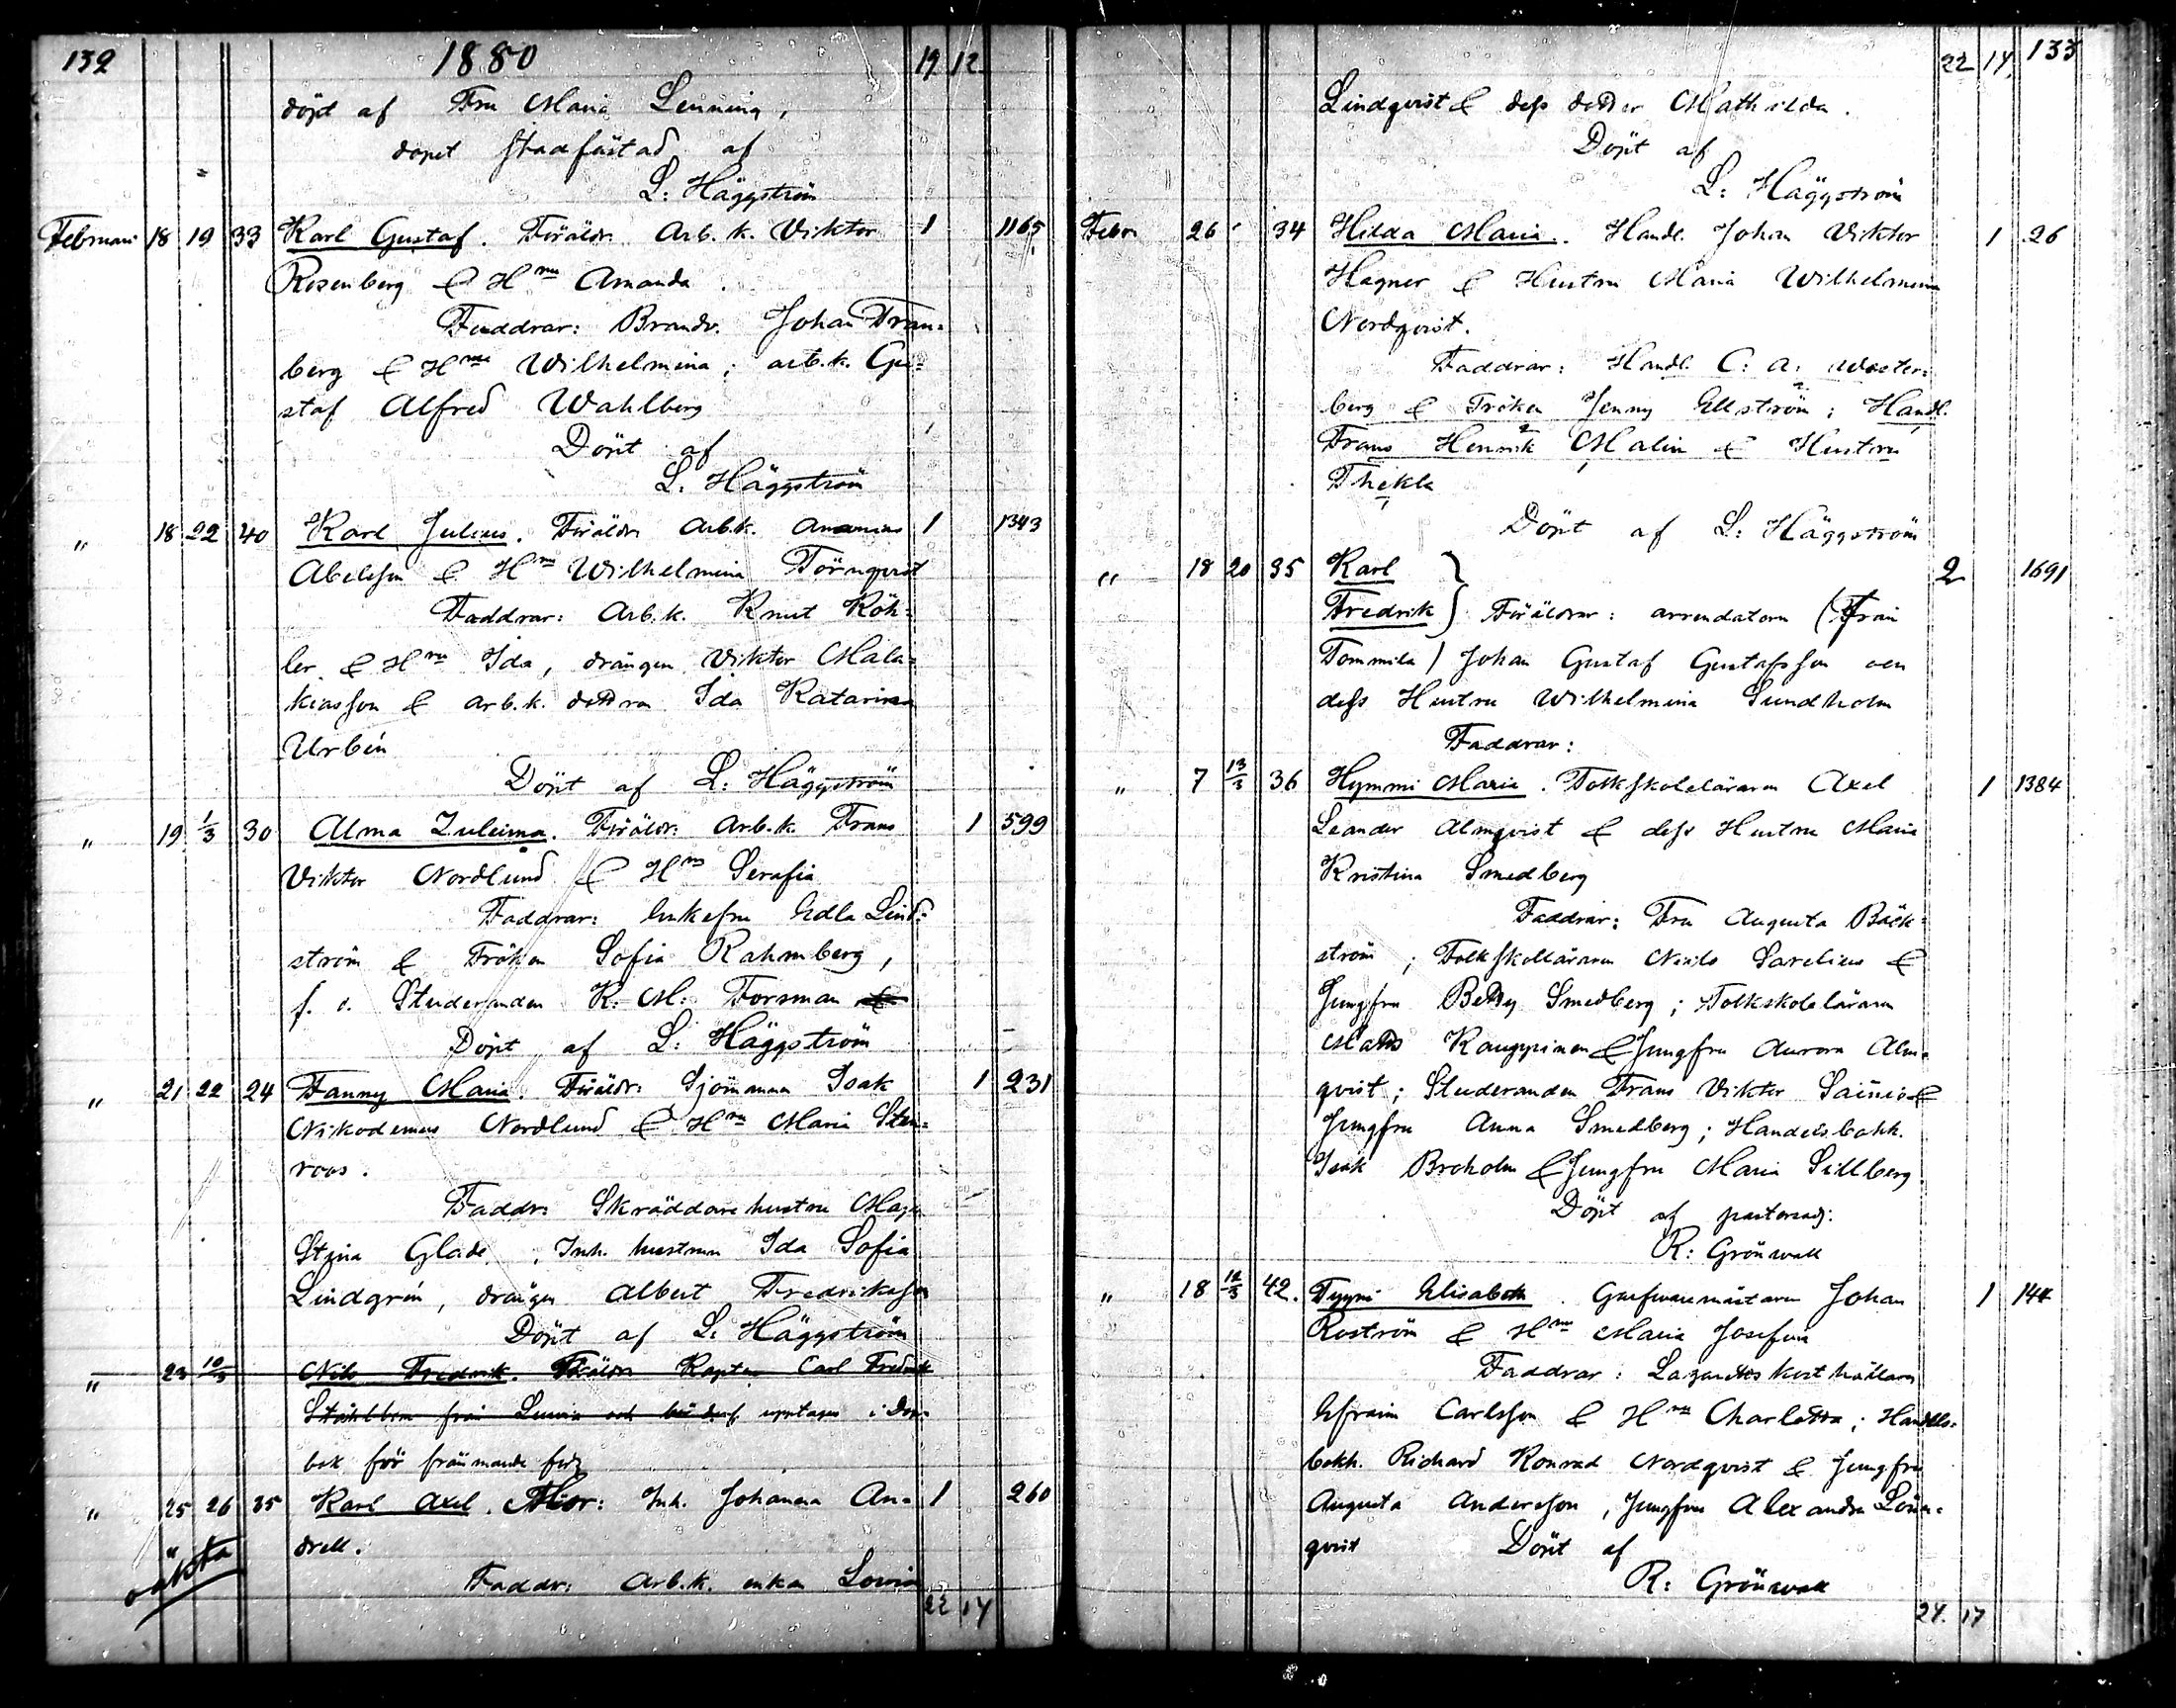 132 1880 19 12
döpt af Fru Maria Lenning,
dopet stadfästad af
L: Häggström
Februari 18 19 33 Karl Gustaf. Föräldr. Arb. k. Viktor 1 1165
Rosenberg & Hru Amanda.
Faddrar: Brandv. Johan Fran=
berg & Hru Wilhelmina; arb.k. Gu=
staf Alfred Wahlberg
Döpt af
L. Häggström
" 18 22 40 Karl Julius. Föräldr. Arb.k. Ananias 1 1343
Abelsson & Hru Wilhelmina Törnqvist
Faddrar: Arb.k. Knut Köh=
ler & Hru Ida, drängen Viktor Mala=
kiasson & arb.k. dottren Ida Katarina
Urbén
Döpt af L: Häggström
" 19 1/3 30 Alma Zuleima. Föräldr: Arb.k. Frans 1 599
Viktor Nordlund & Hru Serafia
Faddrar: Enkefru Edla Lind=
ström & Fröken Sofia Rahmberg,
f. d. Studeranden K. M. Forsman
Döpt af L: Häggström
" 21 22 24 Fanny Maria. Föräldr: Sjömannen Isak 1 231
Nikodemus Nordlund & Hru Maria Sten=
roos.
Faddr: Skräddare hustru Maja
Stina Glade, Inh. hustrun Ida Sofia
Lindgrén, drängen Albert Fredriksson
Döpt af L: Häggström
" 23 10/3 Nils Fredrik. Föräldr: Kapten Carl Fredrik
från och upptages i dop=
bok för främmande förs.
" 25 26 35 Karl Axel. Mor: Inh. Johanna An= 1 260
oäkta drell.
Faddr: Arb.k. enkan Lovisa
22 14
22 14, 133
Lindqvist & dess dotter Mathilda.
Döpt af
L: Häggström
Febr 26 34 Hilda Maria. Handl. Johan Viktor 1 26
Hagner & Hustru Maria Wilhelmina
Nordqvist.
Faddrar: Handl. C: A: Wester=
berg & Fröken Jenny Ekström; Handl.
Frans Henrik Malin & Hustru
Thekla
Döpt af L: Häggström
" 18 20 35 Karl 2 1691
Fredrik } Föräldrar: arrendatorn (från
Tommila) Johan Gustaf Gustafsson och
dess Hustru Wilhelmina Sundholm
Faddrar:
" 7 13/3 36 Hymmi Maria. Folkskoleläraren Axel 1 1384
Leander Almqvist & dess Hustru Maria
Kristina Smedberg
Faddrar: Fru Augusta Bäck=
ström; Folkskolläraren Sarelius &
Jungfru Betty Smedberg; Folkskoleläraren
Matts Kauppinen & Jungfru Aurora Alm=
qvist; Studeranden Frans Viktor Sainio &
Jungfru Anna Smedberg; Handels.bokh.
Isak Broholm & Jungfru Maria Sillberg
Döpt af pastorsadj:
R: Grönwall
" 18 12/3 42. Tyyni Elisabeth. Garfvaremästaren Johan 1 144
Roström & Hru Maria Josefina
Faddrar: Lazaretts kosthållaren
Efraim Carlsson & Hru Charlotta; Handels=
bokh. Richard Konrad Nordqvist & Jungfru
Augusta Andersson, Jungfru Alexandra Lönn=
qvist Döpt af
R: Grönwall
24. 17